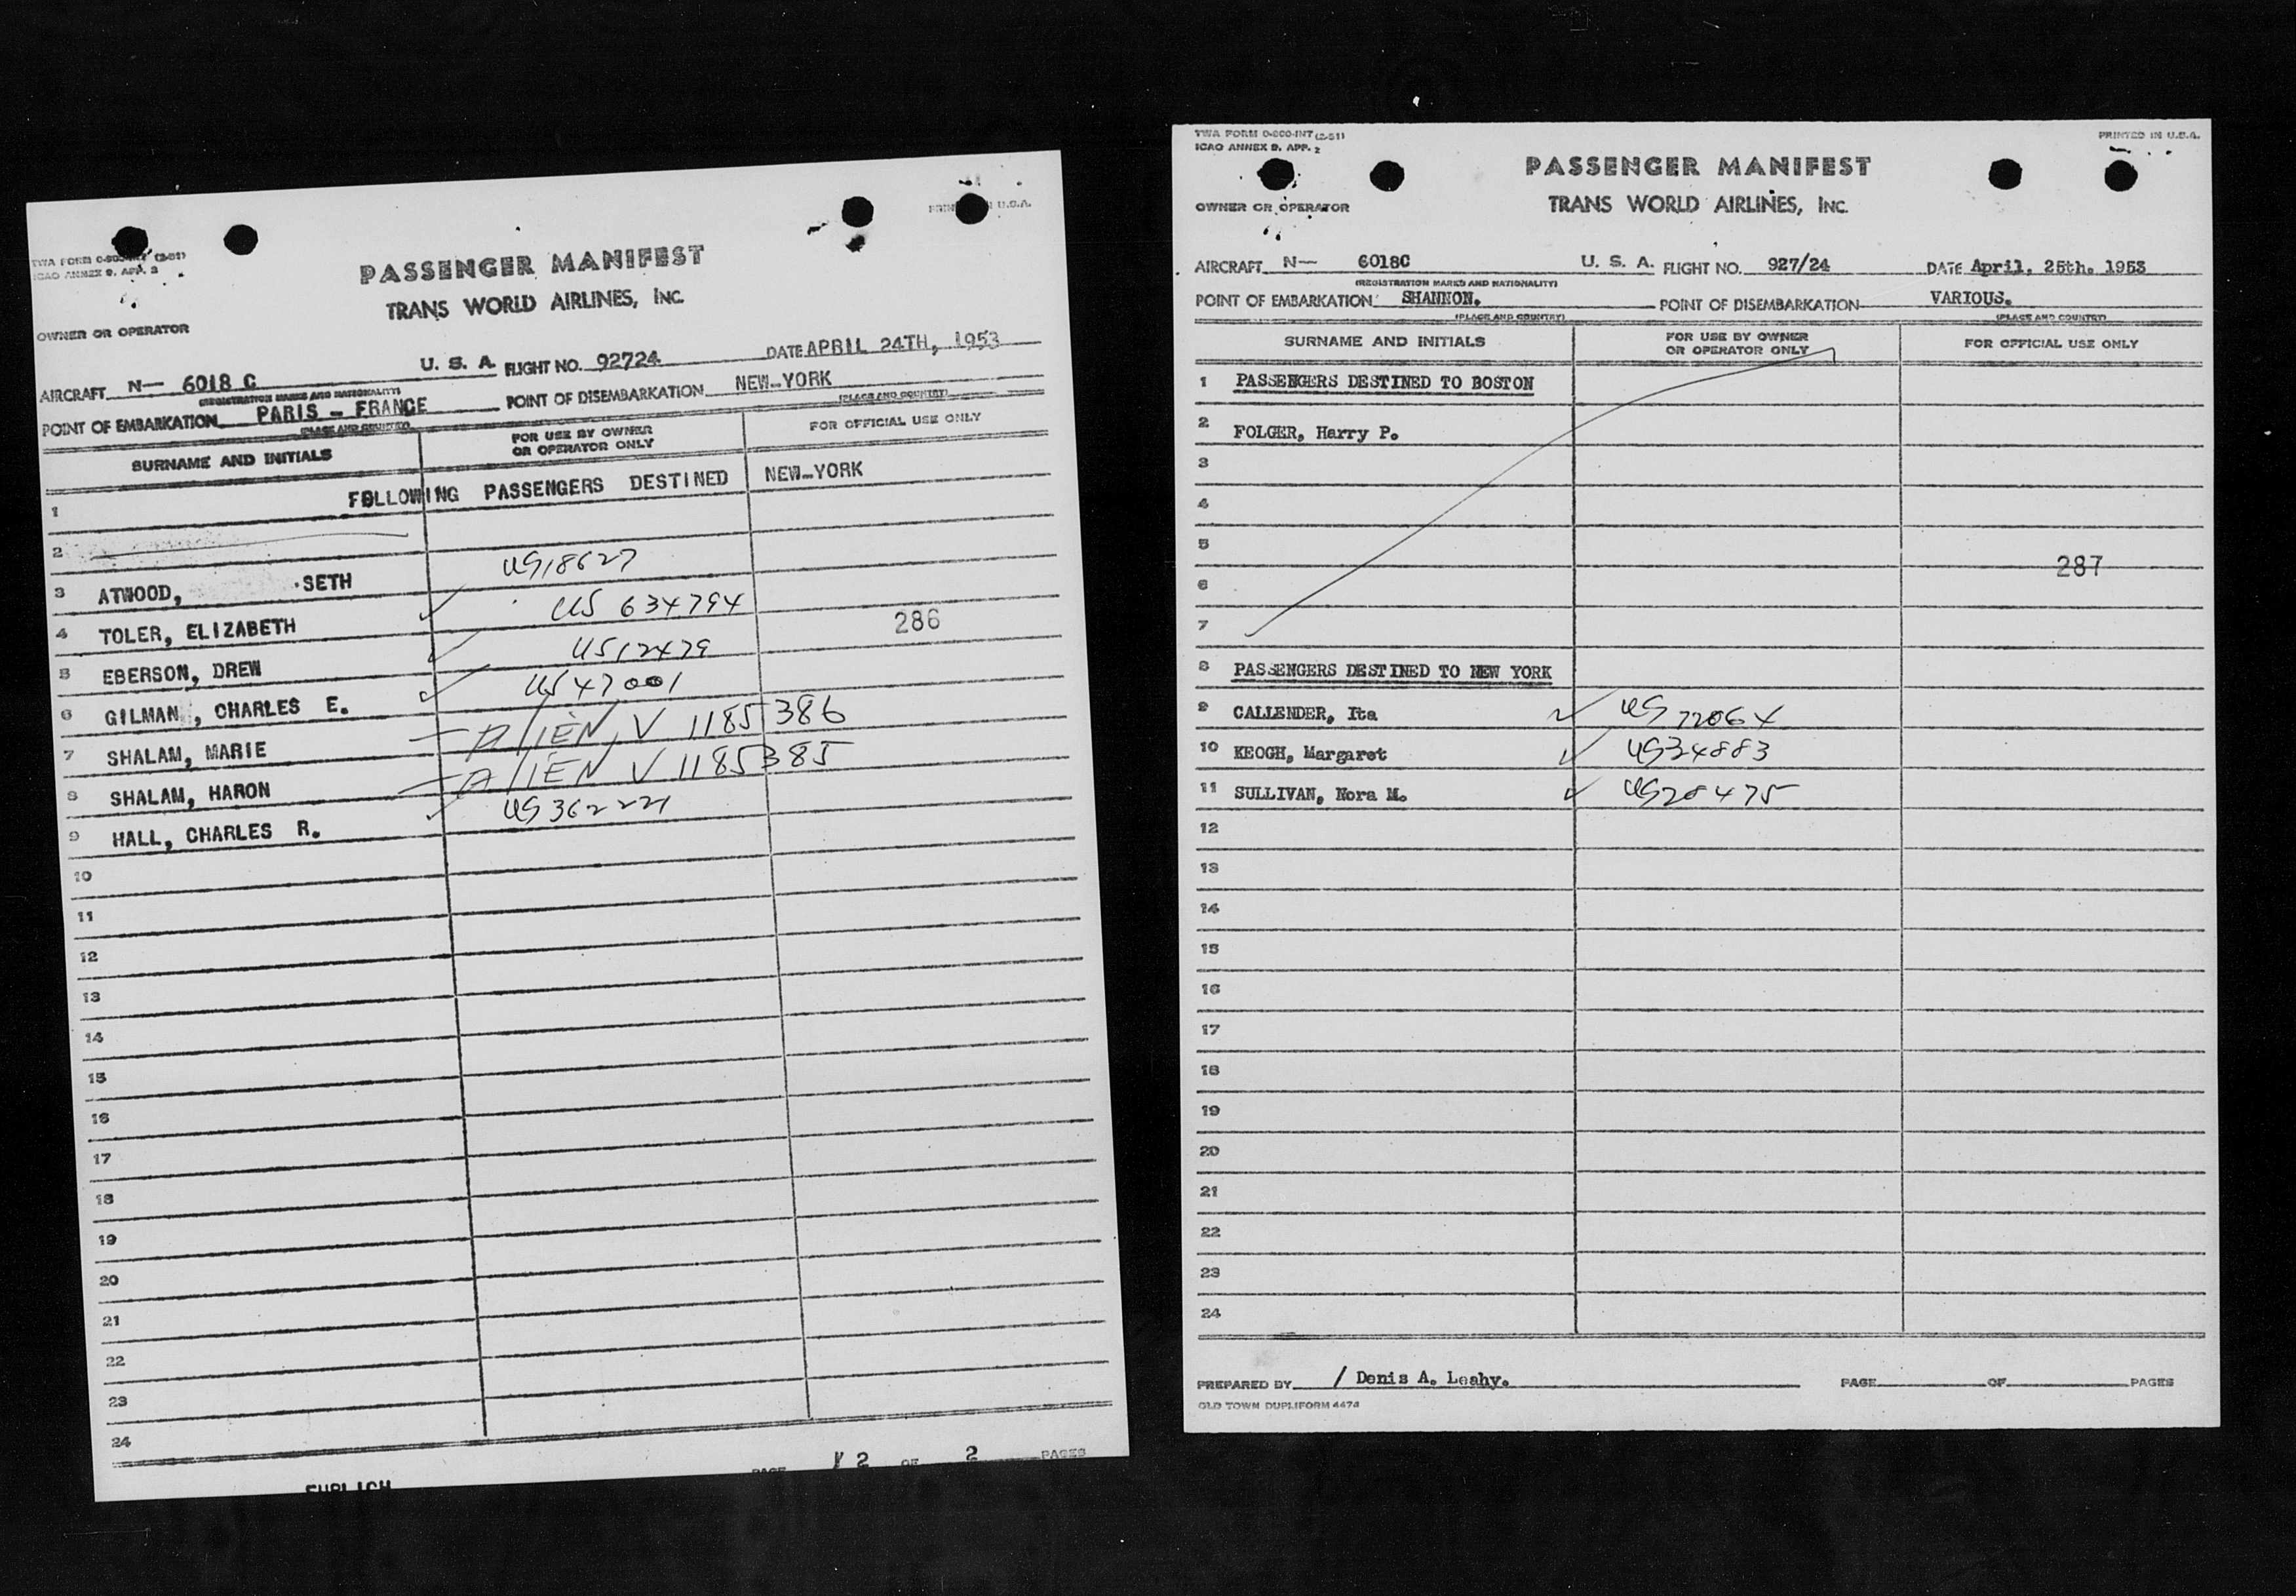 TWA FORM 0-800-INT (2-51)
ICAO ANNEX 9, APP. 2
U.S.A.
PASSENGER MANIFEST
TRANS WORLD AIRLINES, INC.
OWNER OR OPERATOR
AIRCRAFT N— 6018 C U. S. A. FLIGHT NO. 92724 DATE APRIL 24TH, 1953
(REGISTRATION MARKS AND NATIONALITY)
POINT OF EMBARKATION PARIS - FRANCE POINT OF DISEMBARKATION NEW-YORK
(PLACE AND COUNTRY) (PLACE AND COUNTRY)
SURNAME AND INITIALS FOR USE BY OWNER OR OPERATOR ONLY FOR OFFICIAL USE ONLY
1 FOLLOWING PASSENGERS DESTINED NEW-YORK
2
3 ATWOOD, SETH US18627
4 TOLER, ELIZABETH US 634794
286
5 EBERSON, DREW US12479
6 GILMAN, CHARLES E. US 47001
7 SHALAM, MARIE — ALIEN V 1185386
8 SHALAM, HARON — ALIEN V 1185385
9 HALL, CHARLES R. US 362221
10
11
12
13
14
15
16
17
18
19
20
21
22
23
24
PAGE 2 OF 2 PAGES
TWA FORM 0-800-INT (2-51)
ICAO ANNEX 9, APP. 2
PRINTED IN U.S.A.
PASSENGER MANIFEST
TRANS WORLD AIRLINES, INC.
OWNER OR OPERATOR
AIRCRAFT N— 6018C U. S. A. FLIGHT NO. 927/24 DATE April, 25th. 1953
(REGISTRATION MARKS AND NATIONALITY)
POINT OF EMBARKATION SHANNON. POINT OF DISEMBARKATION VARIOUS.
(PLACE AND COUNTRY) (PLACE AND COUNTRY)
SURNAME AND INITIALS FOR USE BY OWNER OR OPERATOR ONLY FOR OFFICIAL USE ONLY
1 PASSENGERS DESTINED TO BOSTON
2 FOLGER, Harry P.
3
4
5
287
6
7
8 PASSENGERS DESTINED TO NEW YORK
9 CALLENDER, Ita US 72064
10 KEOGH, Margaret US34883
11 SULLIVAN, Nora M. US28475
12
13
14
15
16
17
18
19
20
21
22
23
24
PREPARED BY / Denis A. Leahy. PAGE OF PAGES
OLD TOWN DUPLIFORM 4474